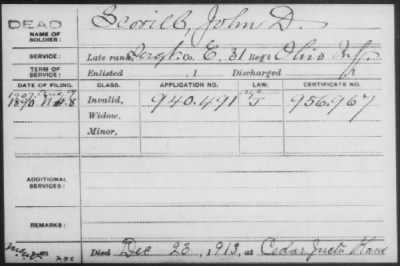 DEAD
NAME OF SOLDIER: Scovill, John D.
SERVICE: Late rank, Sergt. Co. E, 31 Reg't Ohio Inf.
TERM OF SERVICE: Enlisted , 1 Discharged , 1
DATE OF FILING. CLASS. APPLICATION NO. LAW. CERTIFICATE NO.
1890 Invalid, 940.491 956.967
Widow,
Minor,
ADDITIONAL SERVICES:
REMARKS:
Died Dec 23, 1913, at Cedar Junct. Kans